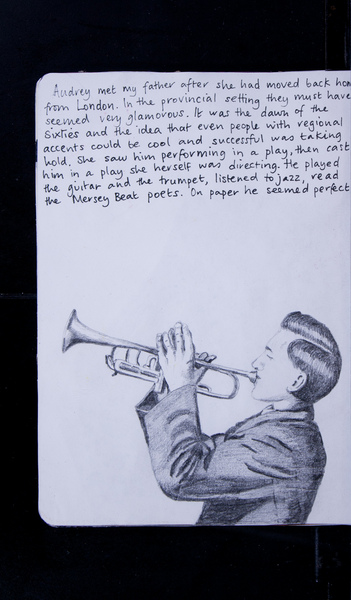 Audrey met my father after she had moved back hom
from London. In the provincial setting they must have
seemed very glamorous. It was the dawn of the
Sixties and the idea that even people with regional
accents could be cool and successful was taking
hold. She saw him performing in a play, then cast
him in a play she herself was directing. He played
the guitar and the trumpet, listened to jazz, read
the Mersey Beat poets. On paper he seemed perfect